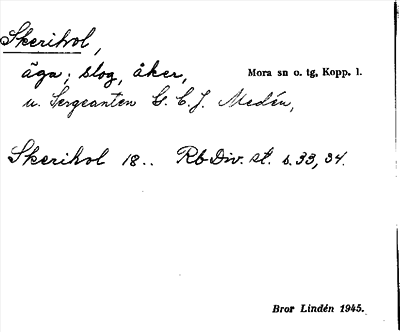 Skerihol,
äga; slog, åker,
Mora sn o. tg, Kopp. l.
u. Sergeanten G. C. J. Medén,
Skerihol 18.. Rb Div. st. s. 33, 34.
Bror Lindén 1945.